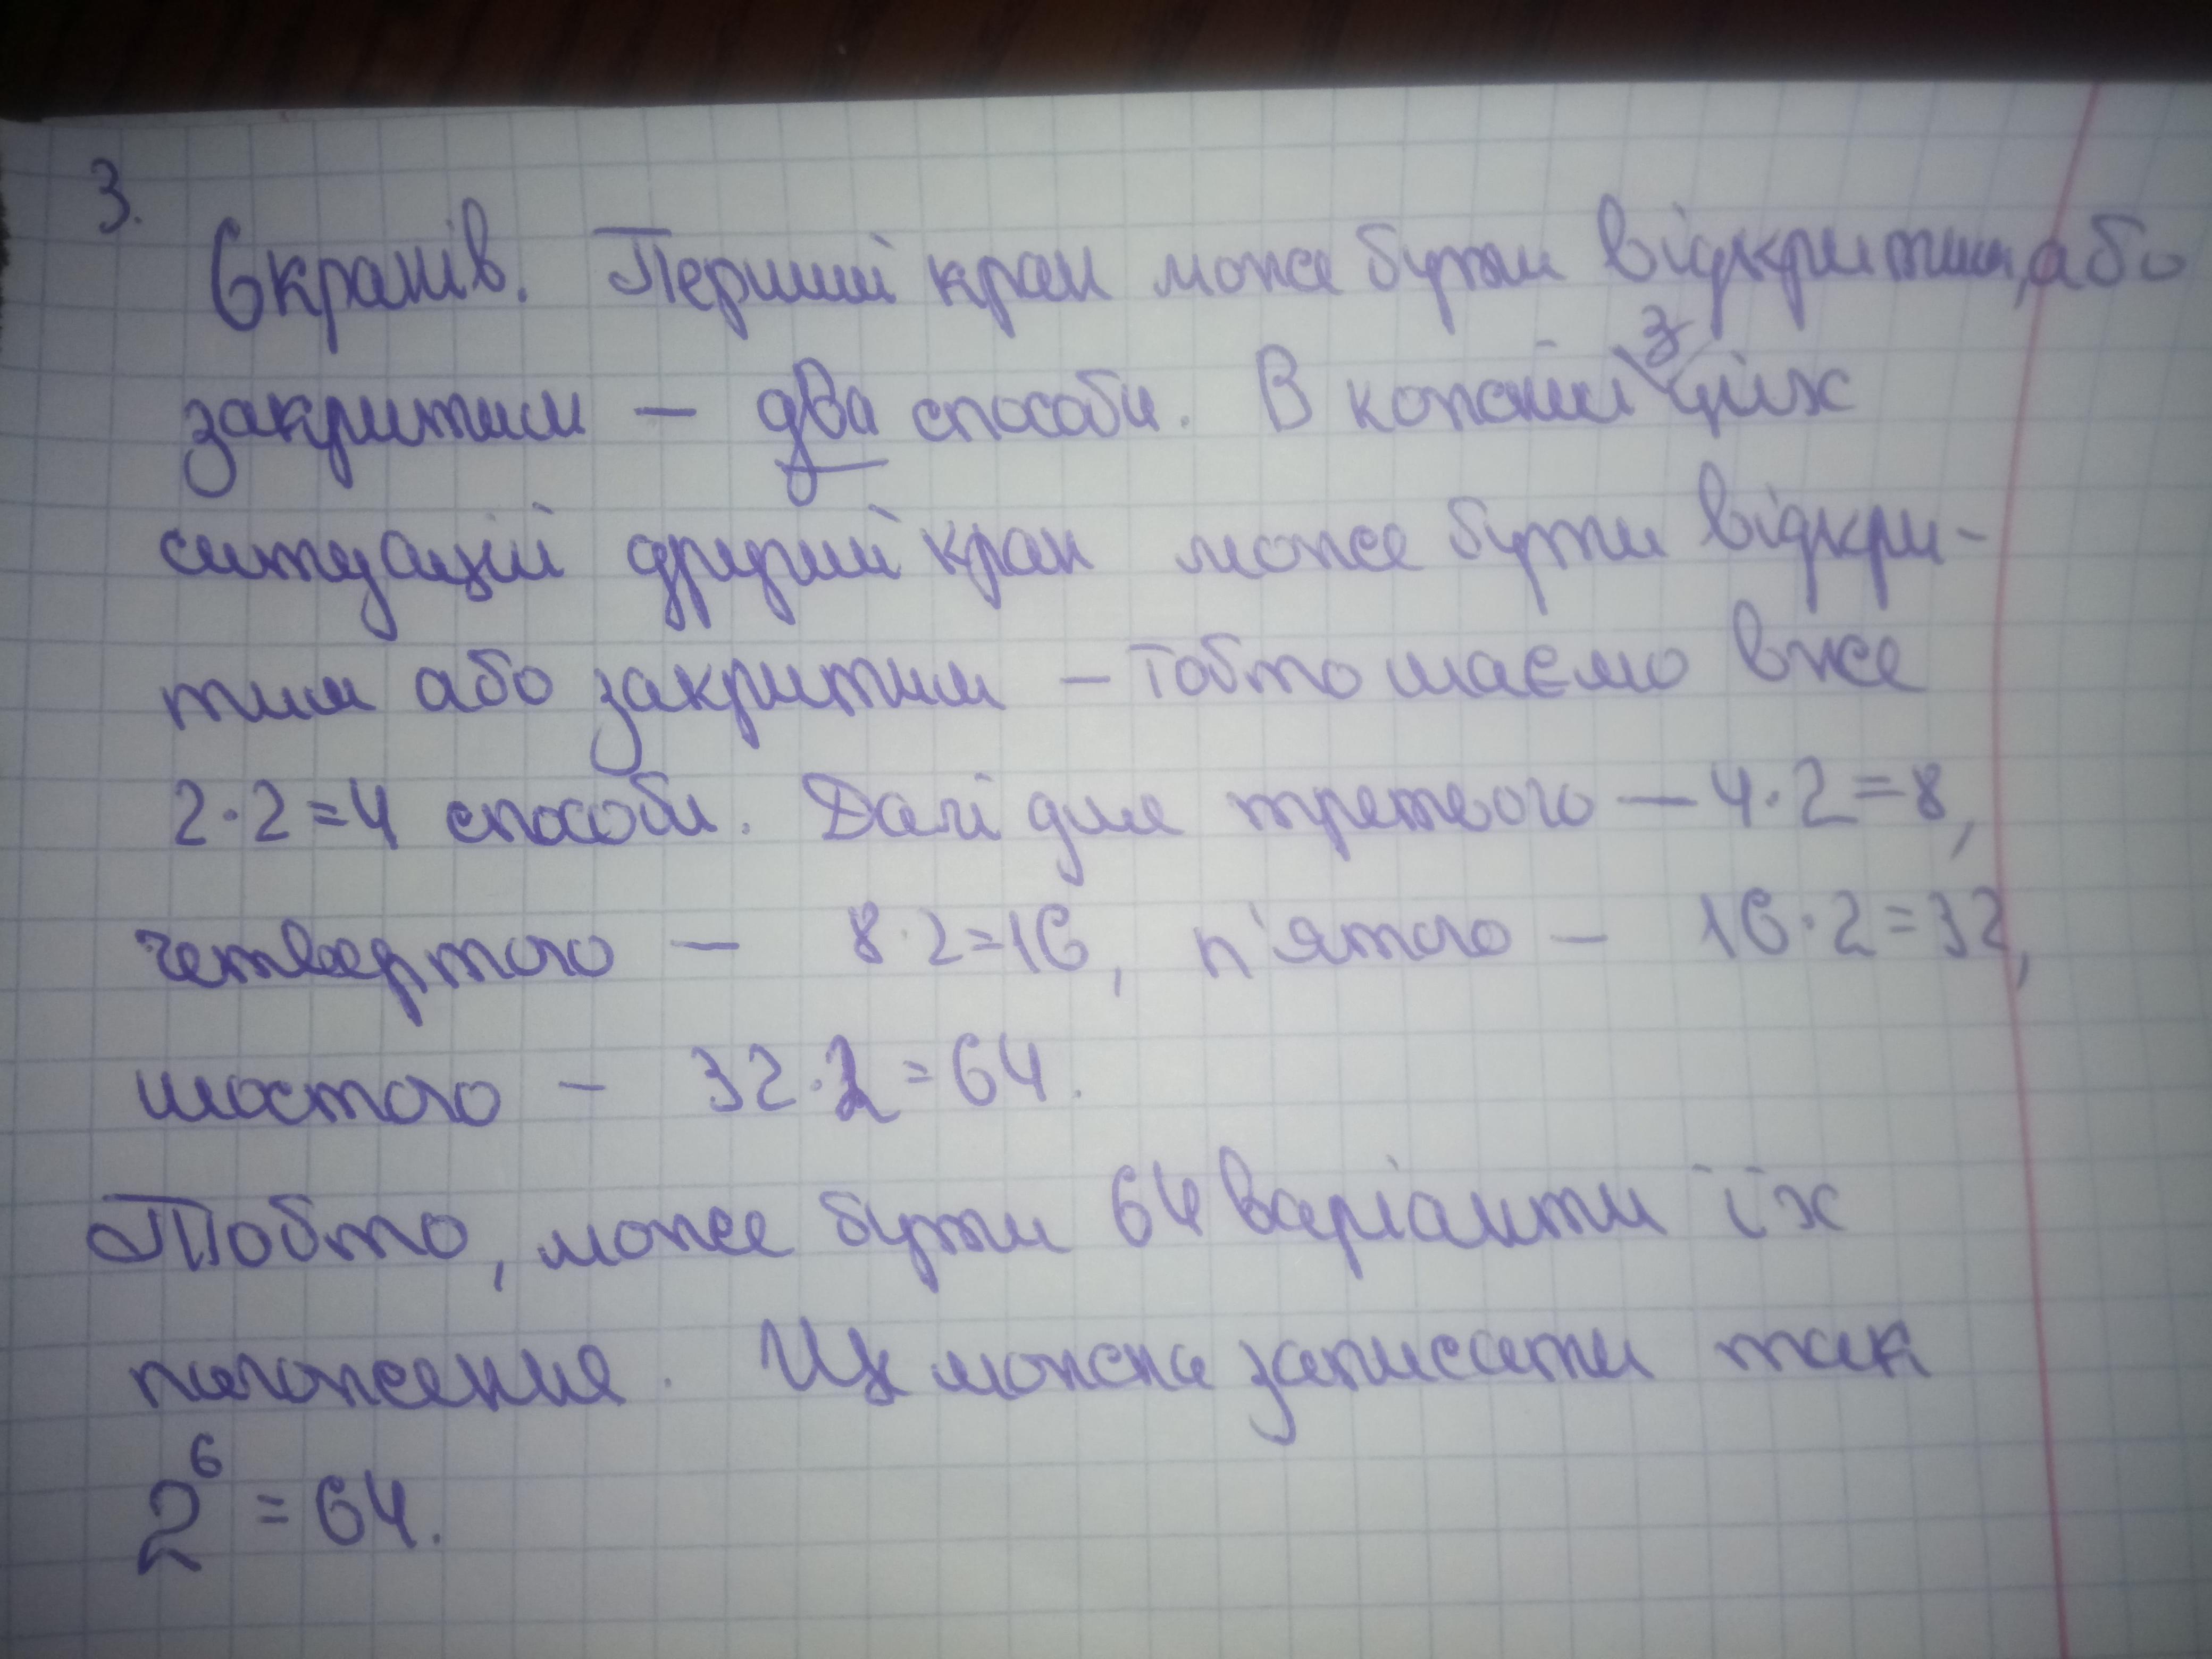 3.
6 кранів. Перший кран може бути відкритим, або
закритим – два способи. В кожній з цих
ситуацій другий кран може бути відкри-
тим або закритим – тобто маємо вже
2·2=4 способи. Далі для третього – 4·2=8,
четвертого – 8·2=16, п'ятого – 16·2=32,
шостого – 32·2=64.
Тобто, може бути 64 варіанти їх
положення. Це можна записати так
2⁶ = 64.